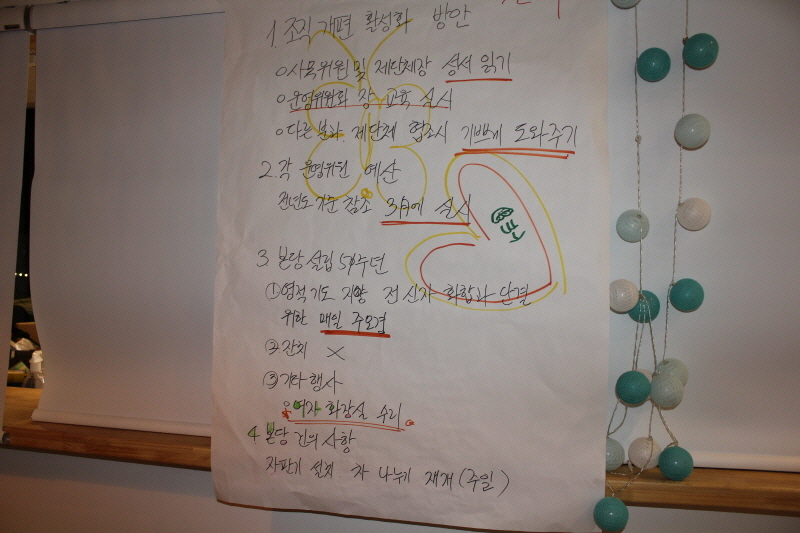 1. 조직개편 활성화 방안
○ 사목위원 및 제단체장 성서 읽기
○ 운영위원회 장 교육 실시
○ 다른분과, 제단체 협조시 기쁘게 도와주기
2. 각 운영위원 예산
전년도 기준 참조 3月에 실시
3. 본당 설립 50주년
① 영적기도 지향 전 신자 화합과 단결
위한 매일 주모경
② 잔치 ×
③ 기타 행사
○ 여자 화장실 수리
4 본당 건의 사항
자판기 설치 차 나누기 재개 (주일)